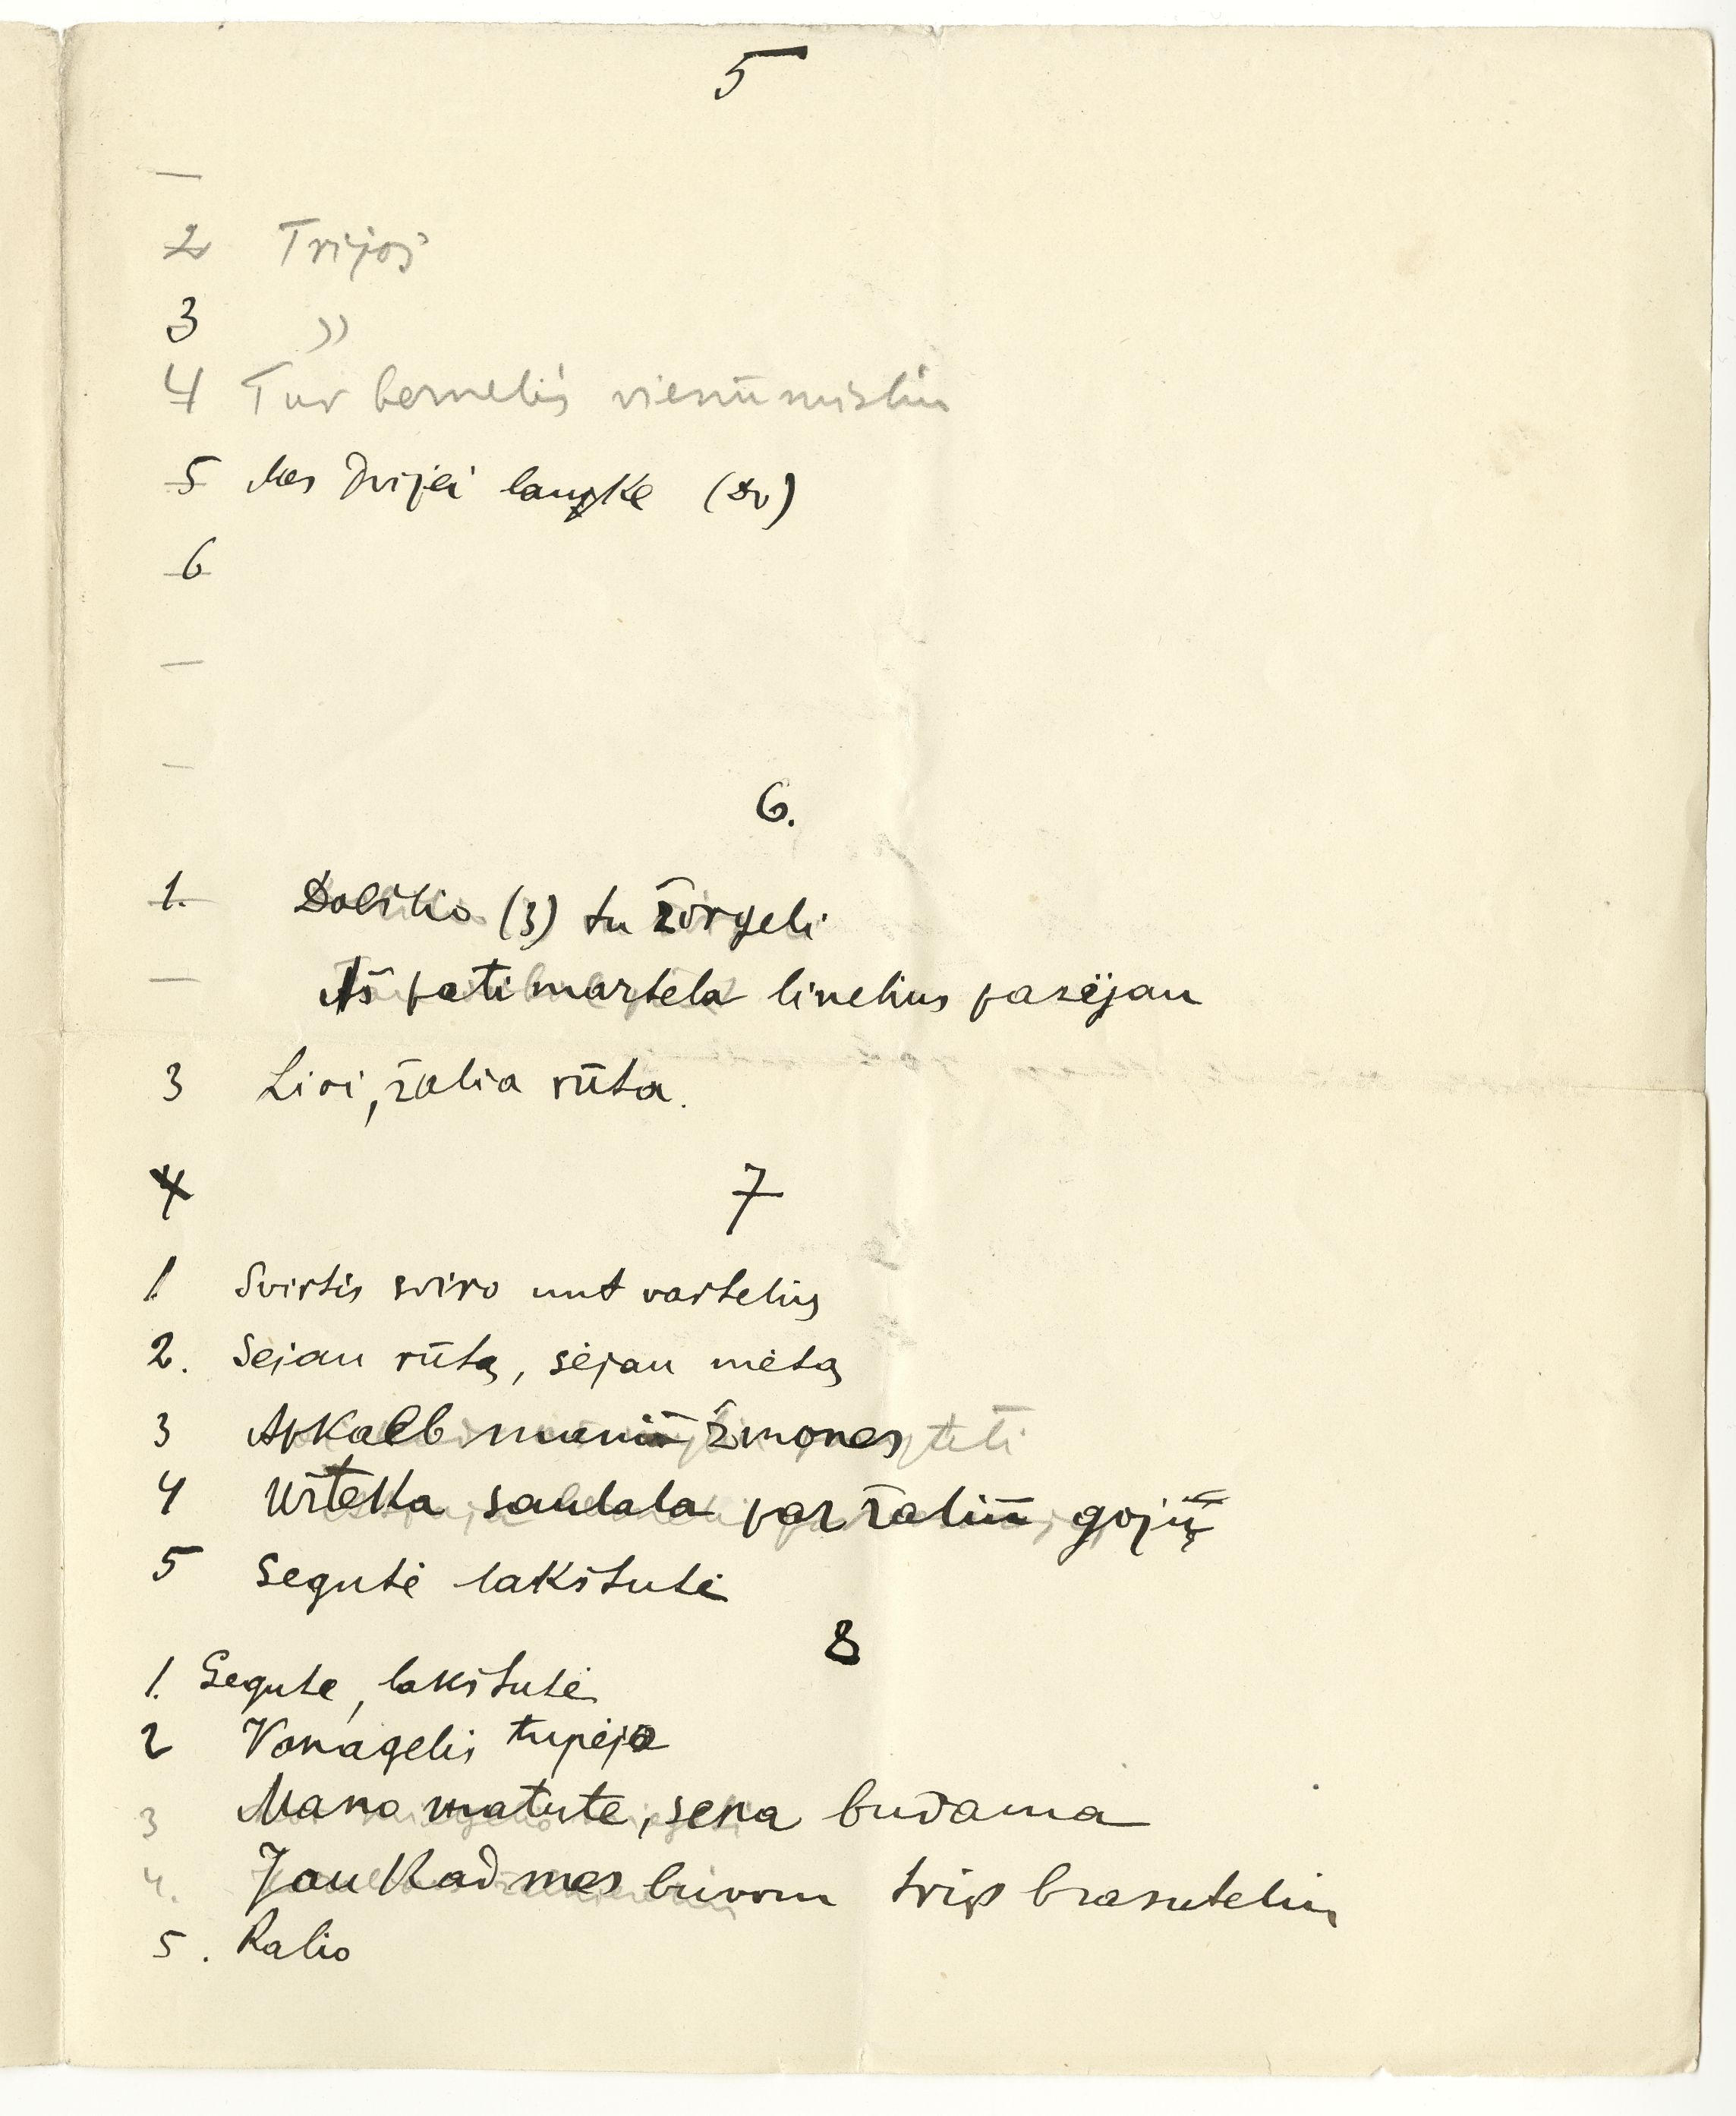 5
—
2 Trijos
3 "
4 Tur bernelis vienū mislių
5 Mes dvijei lauke (sv)
6
—
—
6.
1. Dobilio (3) tu žirgeli
— Aš pati martela linelius pasėjau
3 Lioi, žalia rūta.
4
7
1 Svirtis sviro unt vartelių
2. Sėjau rūtą, sėjau mėtą
3 Apkalb muni žmones
4 Užteka saulala par žaliū gojų
5 Segutė lakštutė
8
1. Segute, lakštutė
2 Vanagelis tupėjo
3 Mano matute, sena budama
4. Jau kad mes buvom trijs brasutelių
5. Ralio